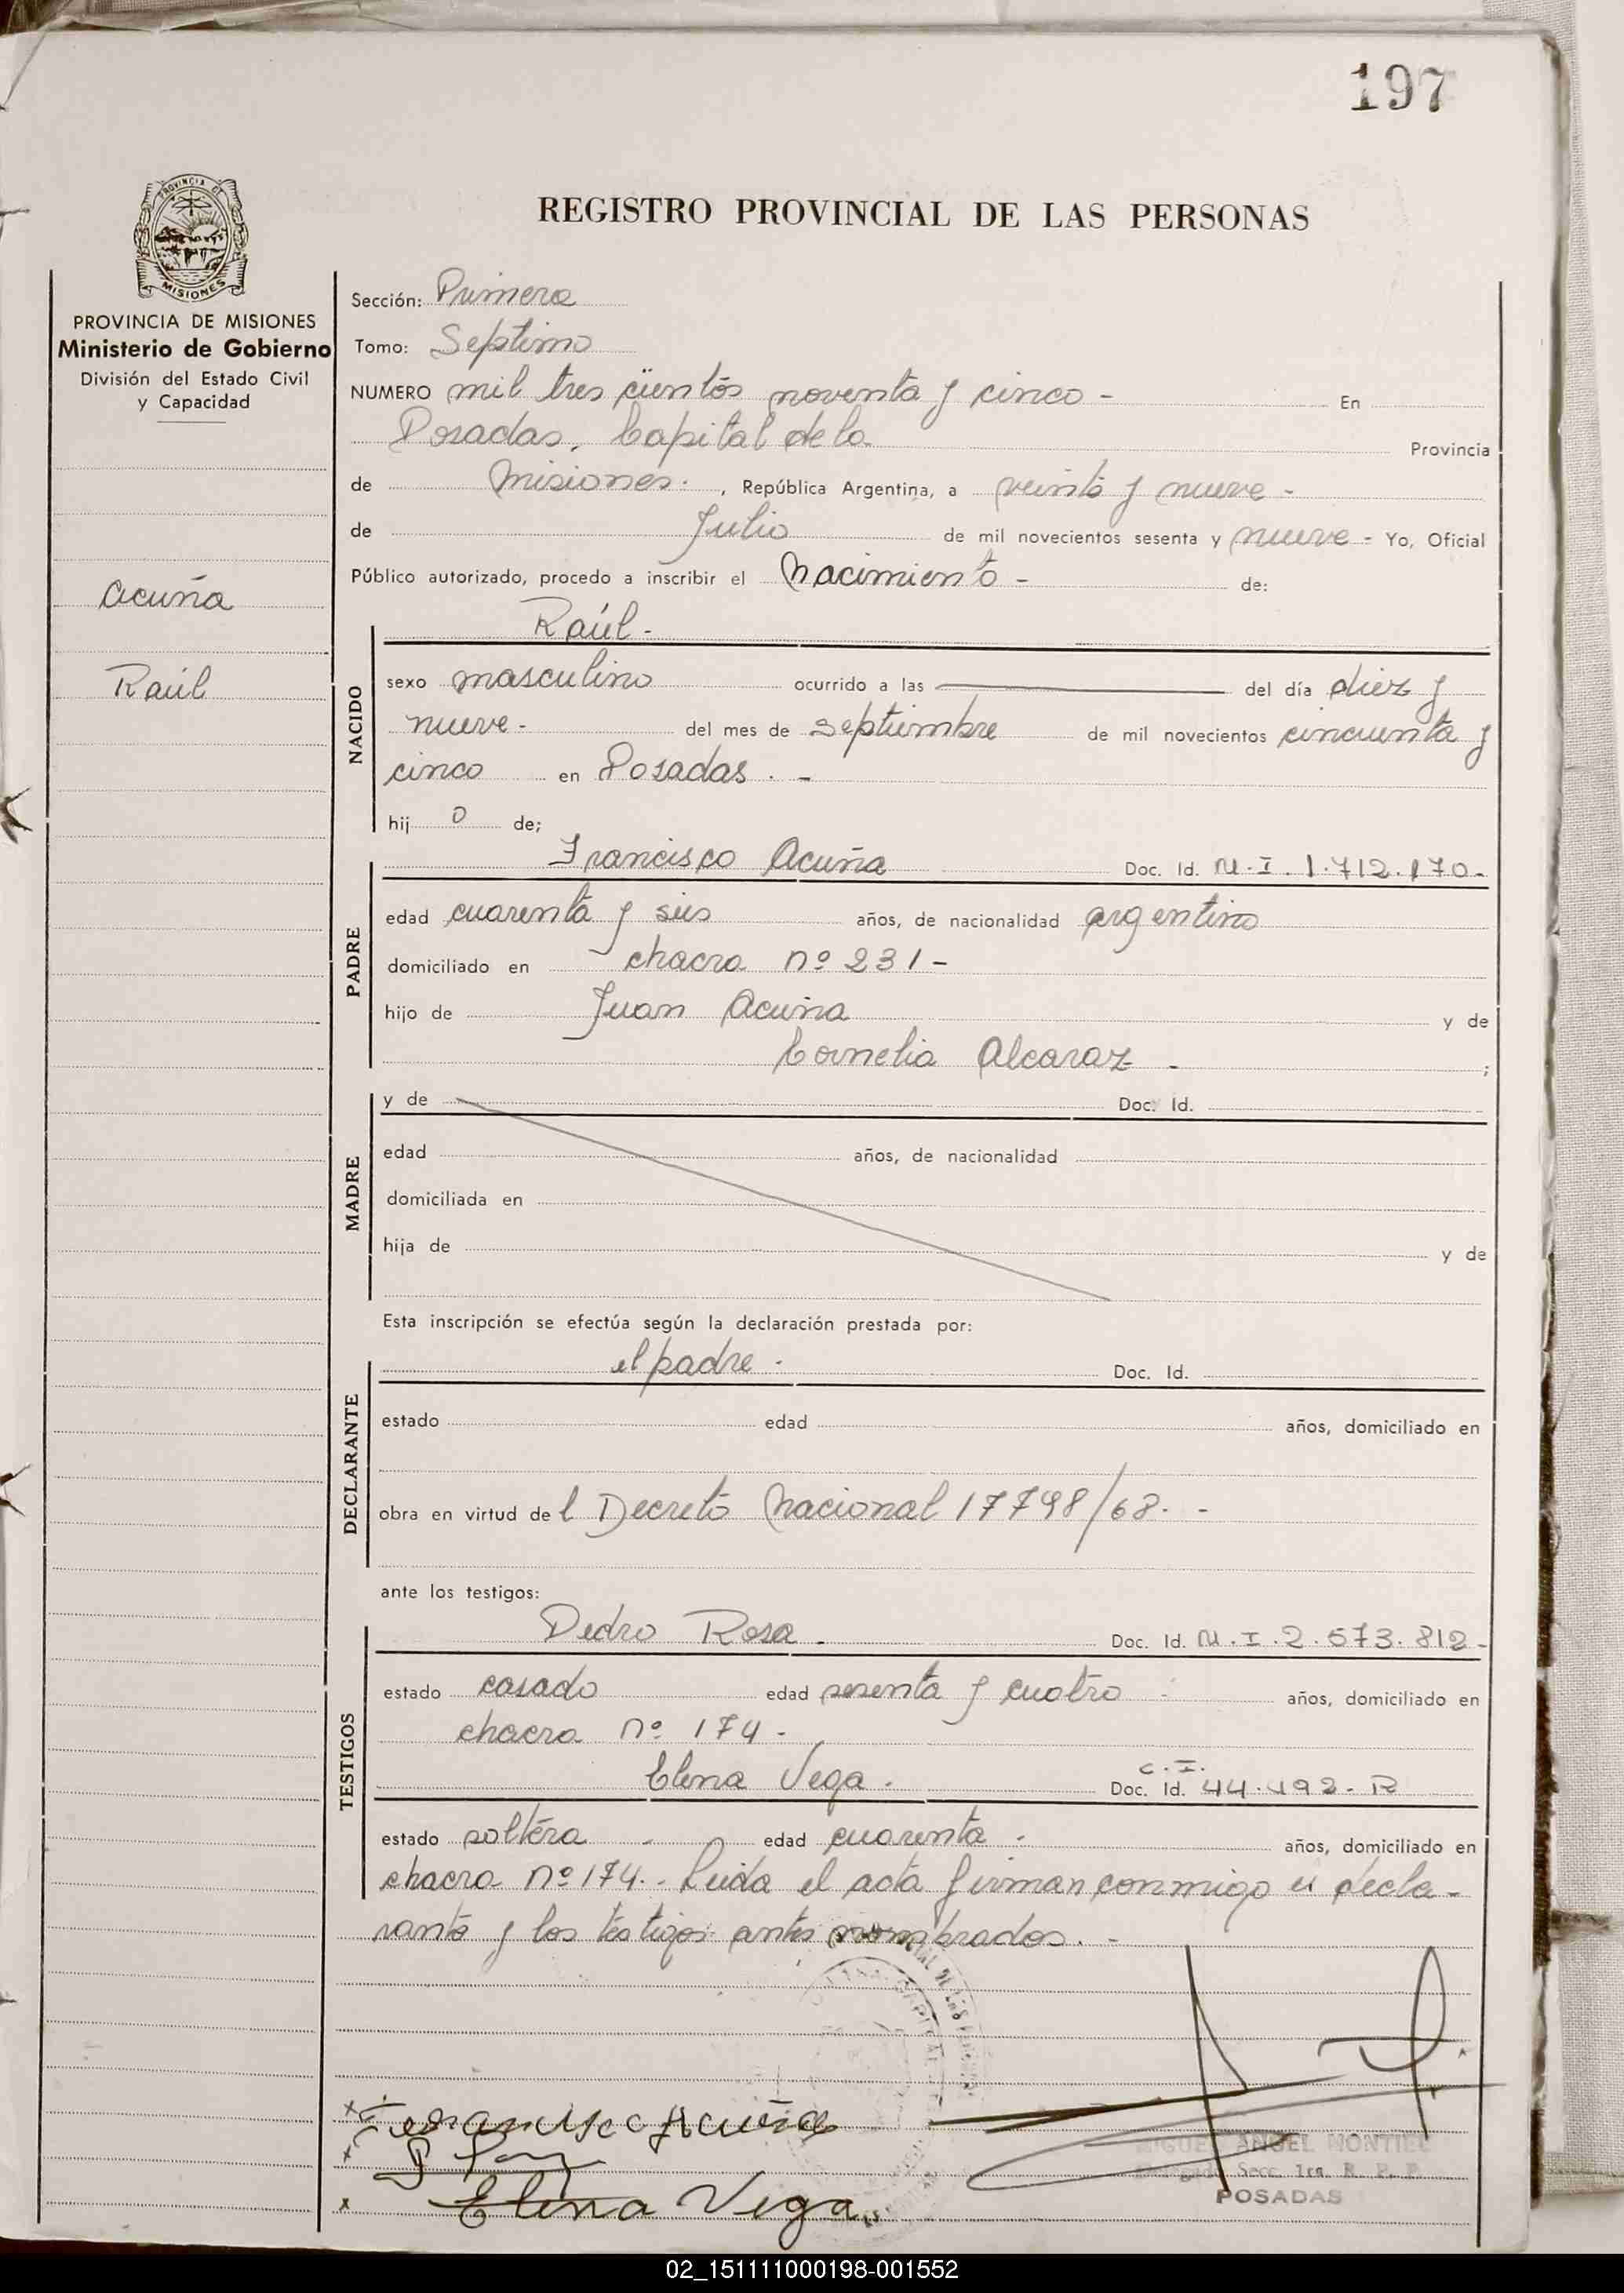 197
PROVINCIA DE MISIONES
REGISTRO PROVINCIAL DE LAS PERSONAS
PROVINCIA DE MISIONES
Ministerio de Gobierno
División del Estado Civil
y Capacidad
Acuña
Raúl
Sección: Primera
Tomo: Septimo
NUMERO mil tres cientos noventa y cinco - En
Posadas, Capital de la Provincia
de Misiones. , República Argentina, a veinte y nueve -
de Julio de mil novecientos sesenta y nueve - Yo, Oficial
Público autorizado, procedo a inscribir el Nacimiento - de:
Raúl -
NACIDO
sexo masculino ocurrido a las del día diez y
nueve - del mes de septiembre de mil novecientos cincuenta y
cinco en Posadas. -
hij o de;
PADRE
Francisco Acuña Doc. Id. M.I. 1.712.170-
edad cuarenta y seis años, de nacionalidad argentino
domiciliado en chacra nº 231 -
hijo de Juan Acuña y de
Cornelia Alcaraz - ;
MADRE
y de Doc. Id.
edad años, de nacionalidad
domiciliada en
hija de y de
Esta inscripción se efectúa según la declaración prestada por:
DECLARANTE
el padre. Doc. Id.
estado edad años, domiciliado en
obra en virtud de l Decreto Nacional 17798/68. -
ante los testigos:
TESTIGOS
Pedro Rosa. Doc. Id. M.I. 2.573.812-
estado casado edad sesenta y cuatro años, domiciliado en
chacra nº 174 -
Elena Vega. Doc. Id. C.I. 44.492-R
estado soltera - edad cuarenta. años, domiciliado en
chacra nº 174. - Leida el acta firman conmigo el decla-
rante y los testigos antes nombrados. -
Francisco Acuña
Elena Vega
MIGUEL ANGEL MONTIEL
Delegado Secc. 1ra. R. P. P.
POSADAS
02_151111000198-001552